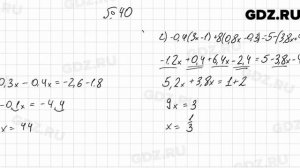 GDZ.RU
№ 40
c) -0,4(3x-1)+8(0,8x-0,3)=5-(3,8x+4
-1,2x+0,4+6,4x-2,4=5-3,8x-4
0,3x-0,4x=-2,6-1,8
5,2x+3,8x=1+2
-0,1x=-4,4
9x=3
x=44
x=1/3
GDZ.RU